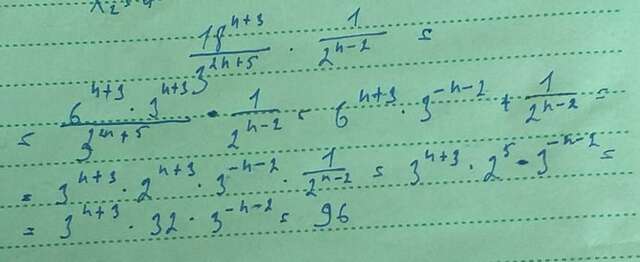 18^{n+3}/3^{2n+5} · 1/2^{n-2} =
= 6^{n+3} · 3^{n+3}/3^{2n+5} · 1/2^{n-2} = 6^{n+3} · 3^{-n-2} · 1/2^{n-2} =
= 3^{n+3} · 2^{n+3} · 3^{-n-2} · 1/2^{n-2} = 3^{n+3} · 2^5 · 3^{-n-2} =
= 3^{n+3} · 32 · 3^{-n-2} = 96